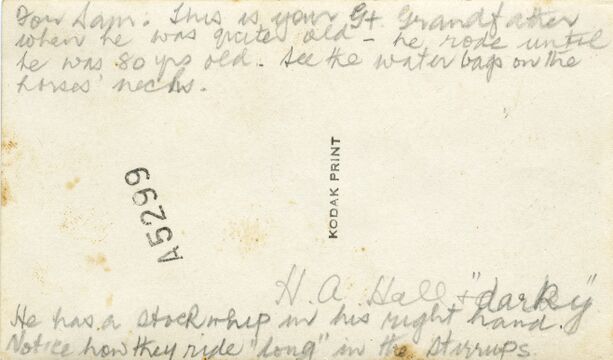 For Sam: This is your Gt. Grandfather
when he was quite old - he rode until
he was 80 yrs old. See the water bags on the
horses' necks.
KODAK PRINT
A5299
H. A. Hall + "darky"
He has a stockwhip in his right hand.
Notice how they ride "long" in the stirrups